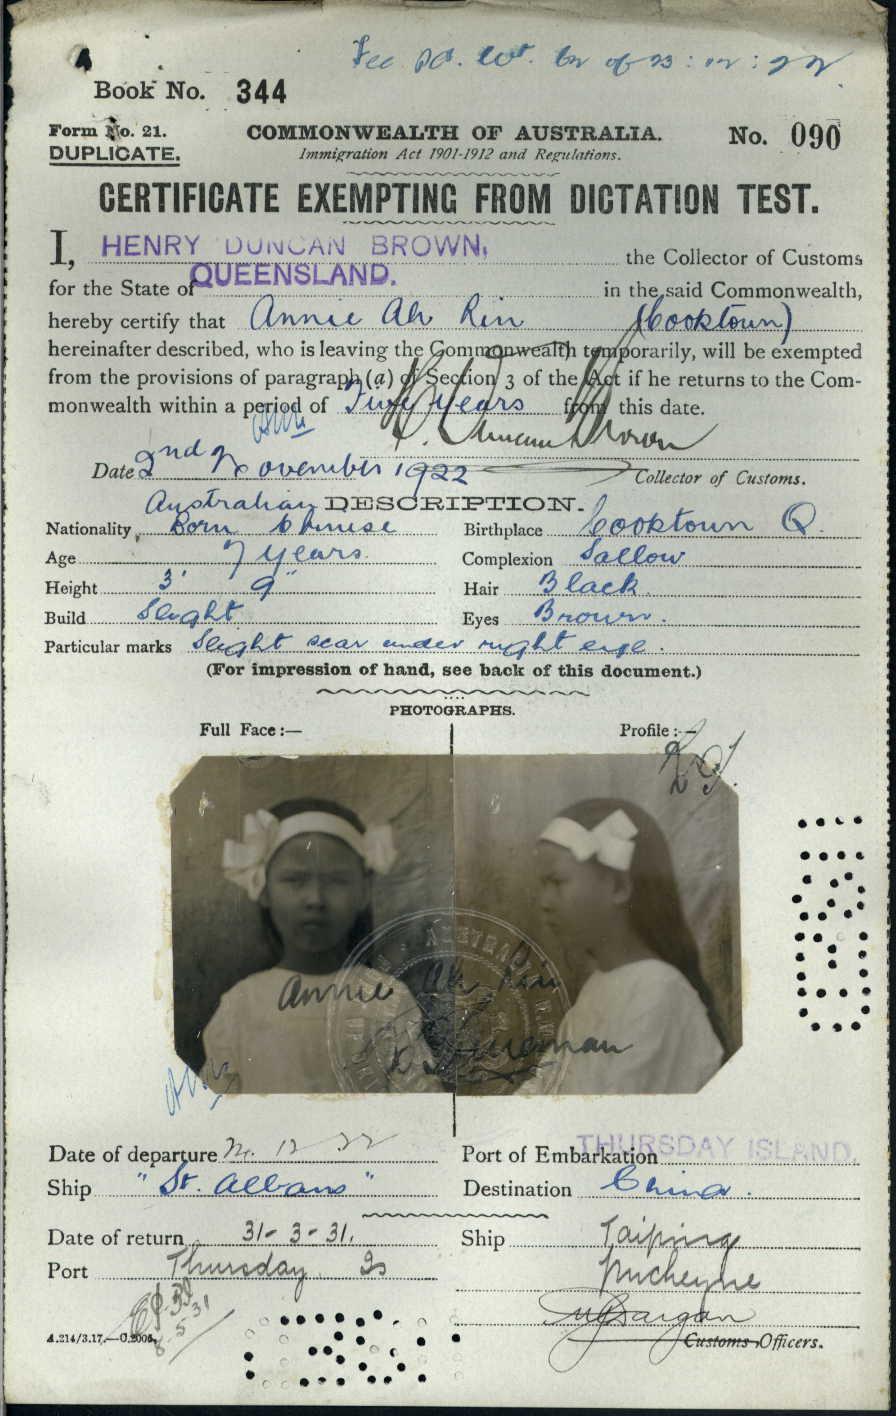 Book No. 344
Form No. 21.
DUPLICATE.
COMMONWEALTH OF AUSTRALIA.
Immigration Act 1901-1912 and Regulations.
No. 090
CERTIFICATE EXEMPTING FROM DICTATION TEST.
I, HENRY DUNCAN BROWN, the Collector of Customs
for the State of QUEENSLAND. in the said Commonwealth,
hereby certify that Annie Ah Rin (Cooktown)
hereinafter described, who is leaving the Commonwealth temporarily, will be exempted
from the provisions of paragraph (a) of Section 3 of the Act if he returns to the Com-
monwealth within a period of years from this date.
H. Duncan Brown
Date 2nd November 1922 Collector of Customs.
DESCRIPTION.
Nationality Australian Born Chinese
Birthplace Cooktown Q.
Age 7 years.
Complexion Sallow
Height 3' 9"
Hair Black.
Build Slight
Eyes Brown.
Particular marks Slight scar under right eye.
(For impression of hand, see back of this document.)
PHOTOGRAPHS.
Full Face :—
Profile :—
Annie Ah Rin
Date of departure 12 22
Port of Embarkation THURSDAY ISLAND.
Ship "St. Albans"
Destination China.
Date of return 31-3-31.
Ship Taiping
Port Thursday Is
A.214/3.17.—C.2005.
Customs Officers.